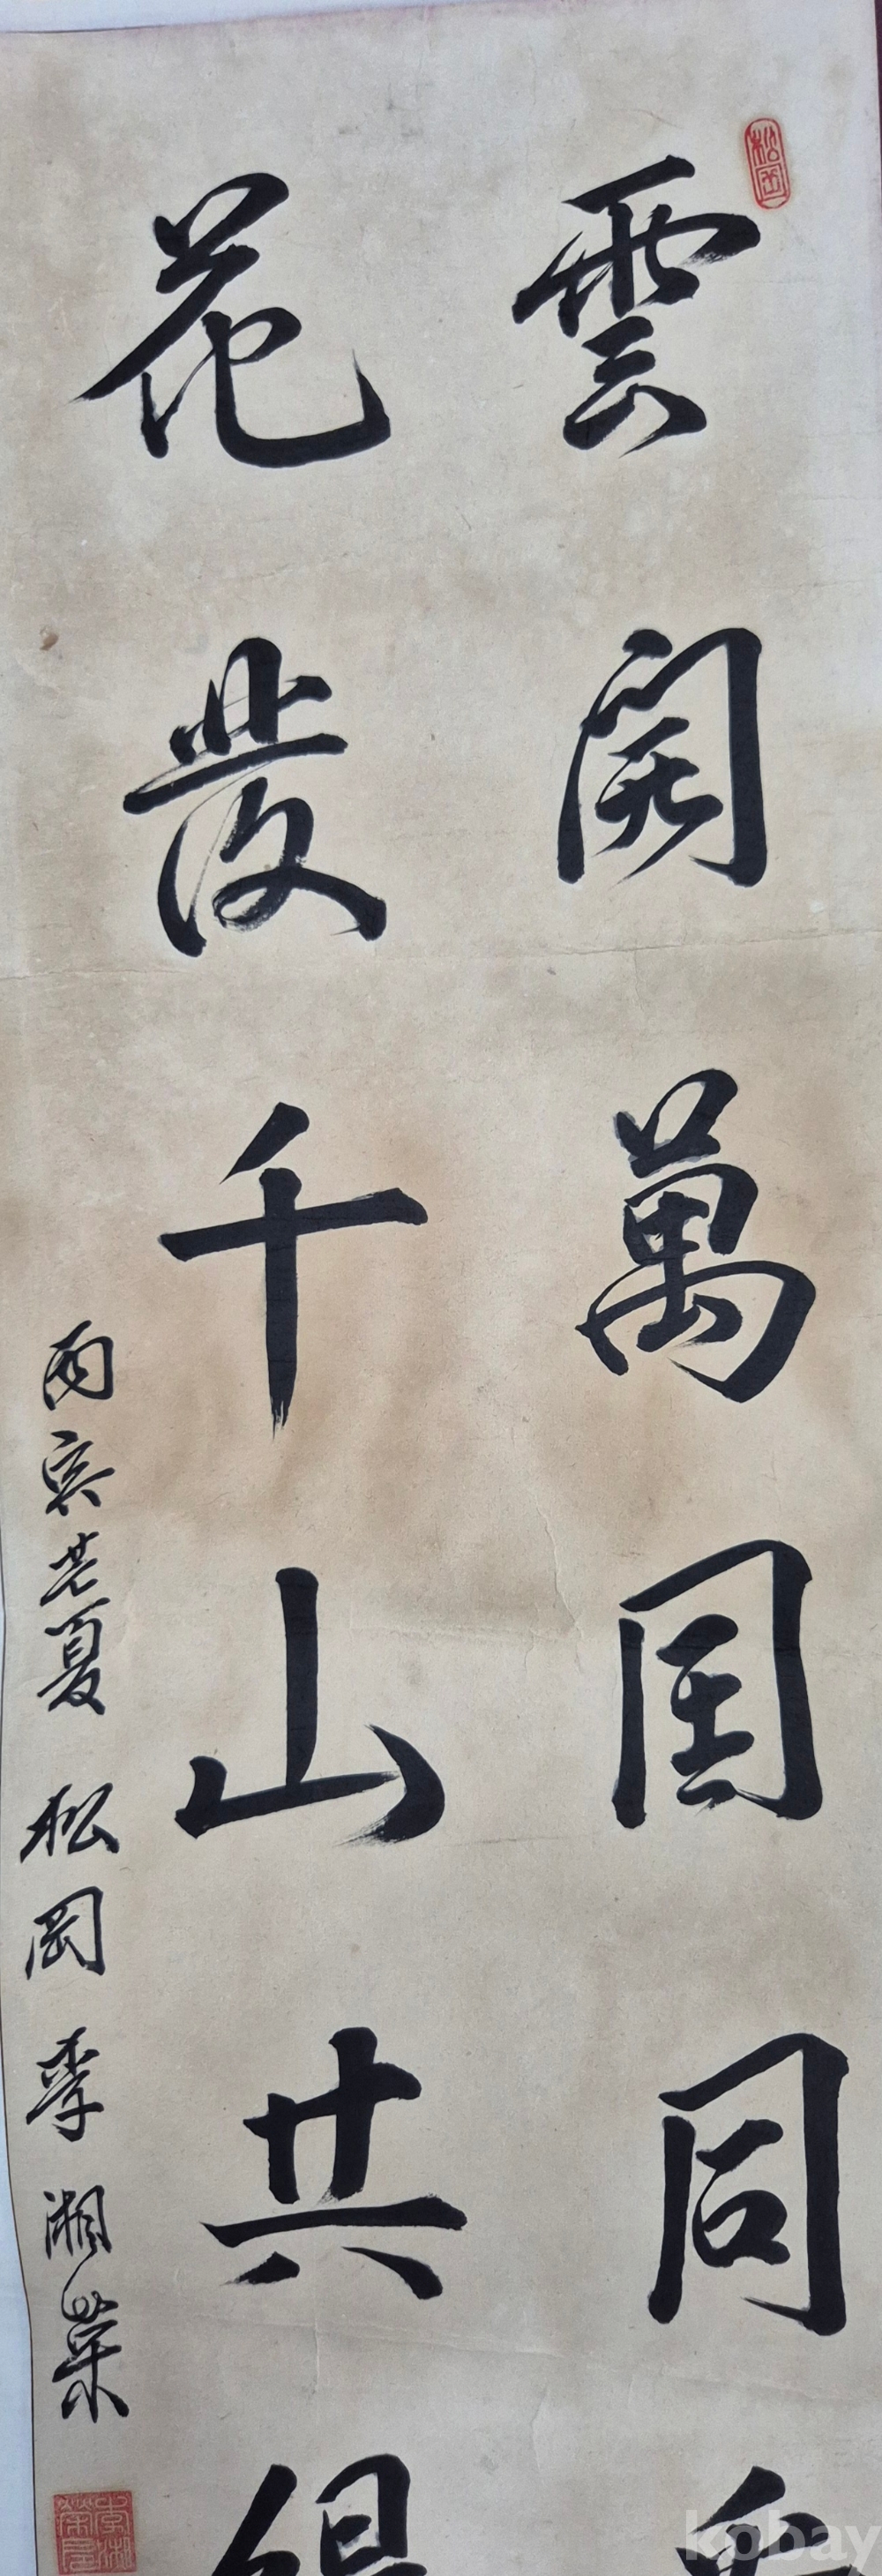 雲開萬国同
花發千山共
丙寅芒夏 松岡 李湘菜
松岡
kobay